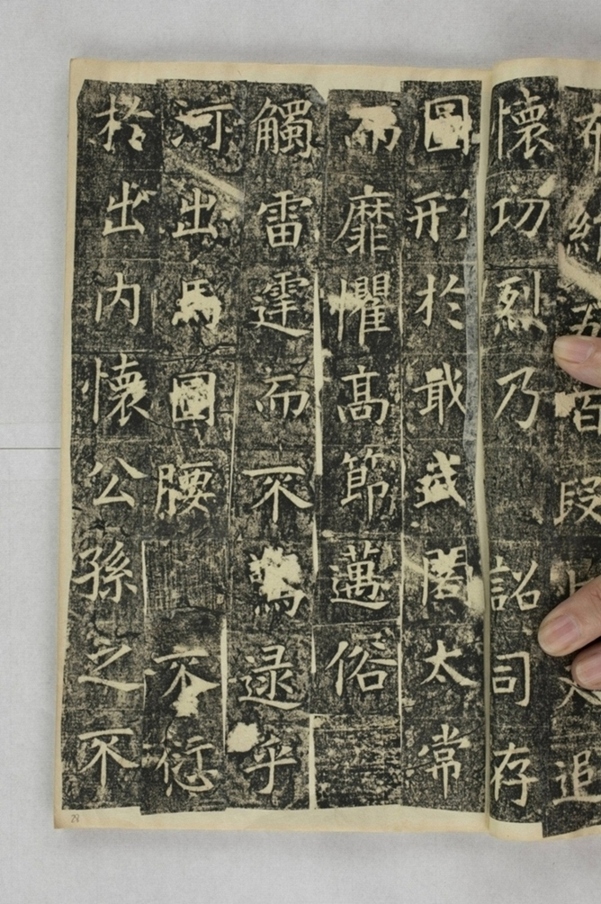 五百段 追
懷功烈乃 詔司存
圖形於戢武閣太常
而靡懼高節邁俗
觸雷霆而不 逮乎
河出馬圖腰 不愆
於出內懷公孫之不